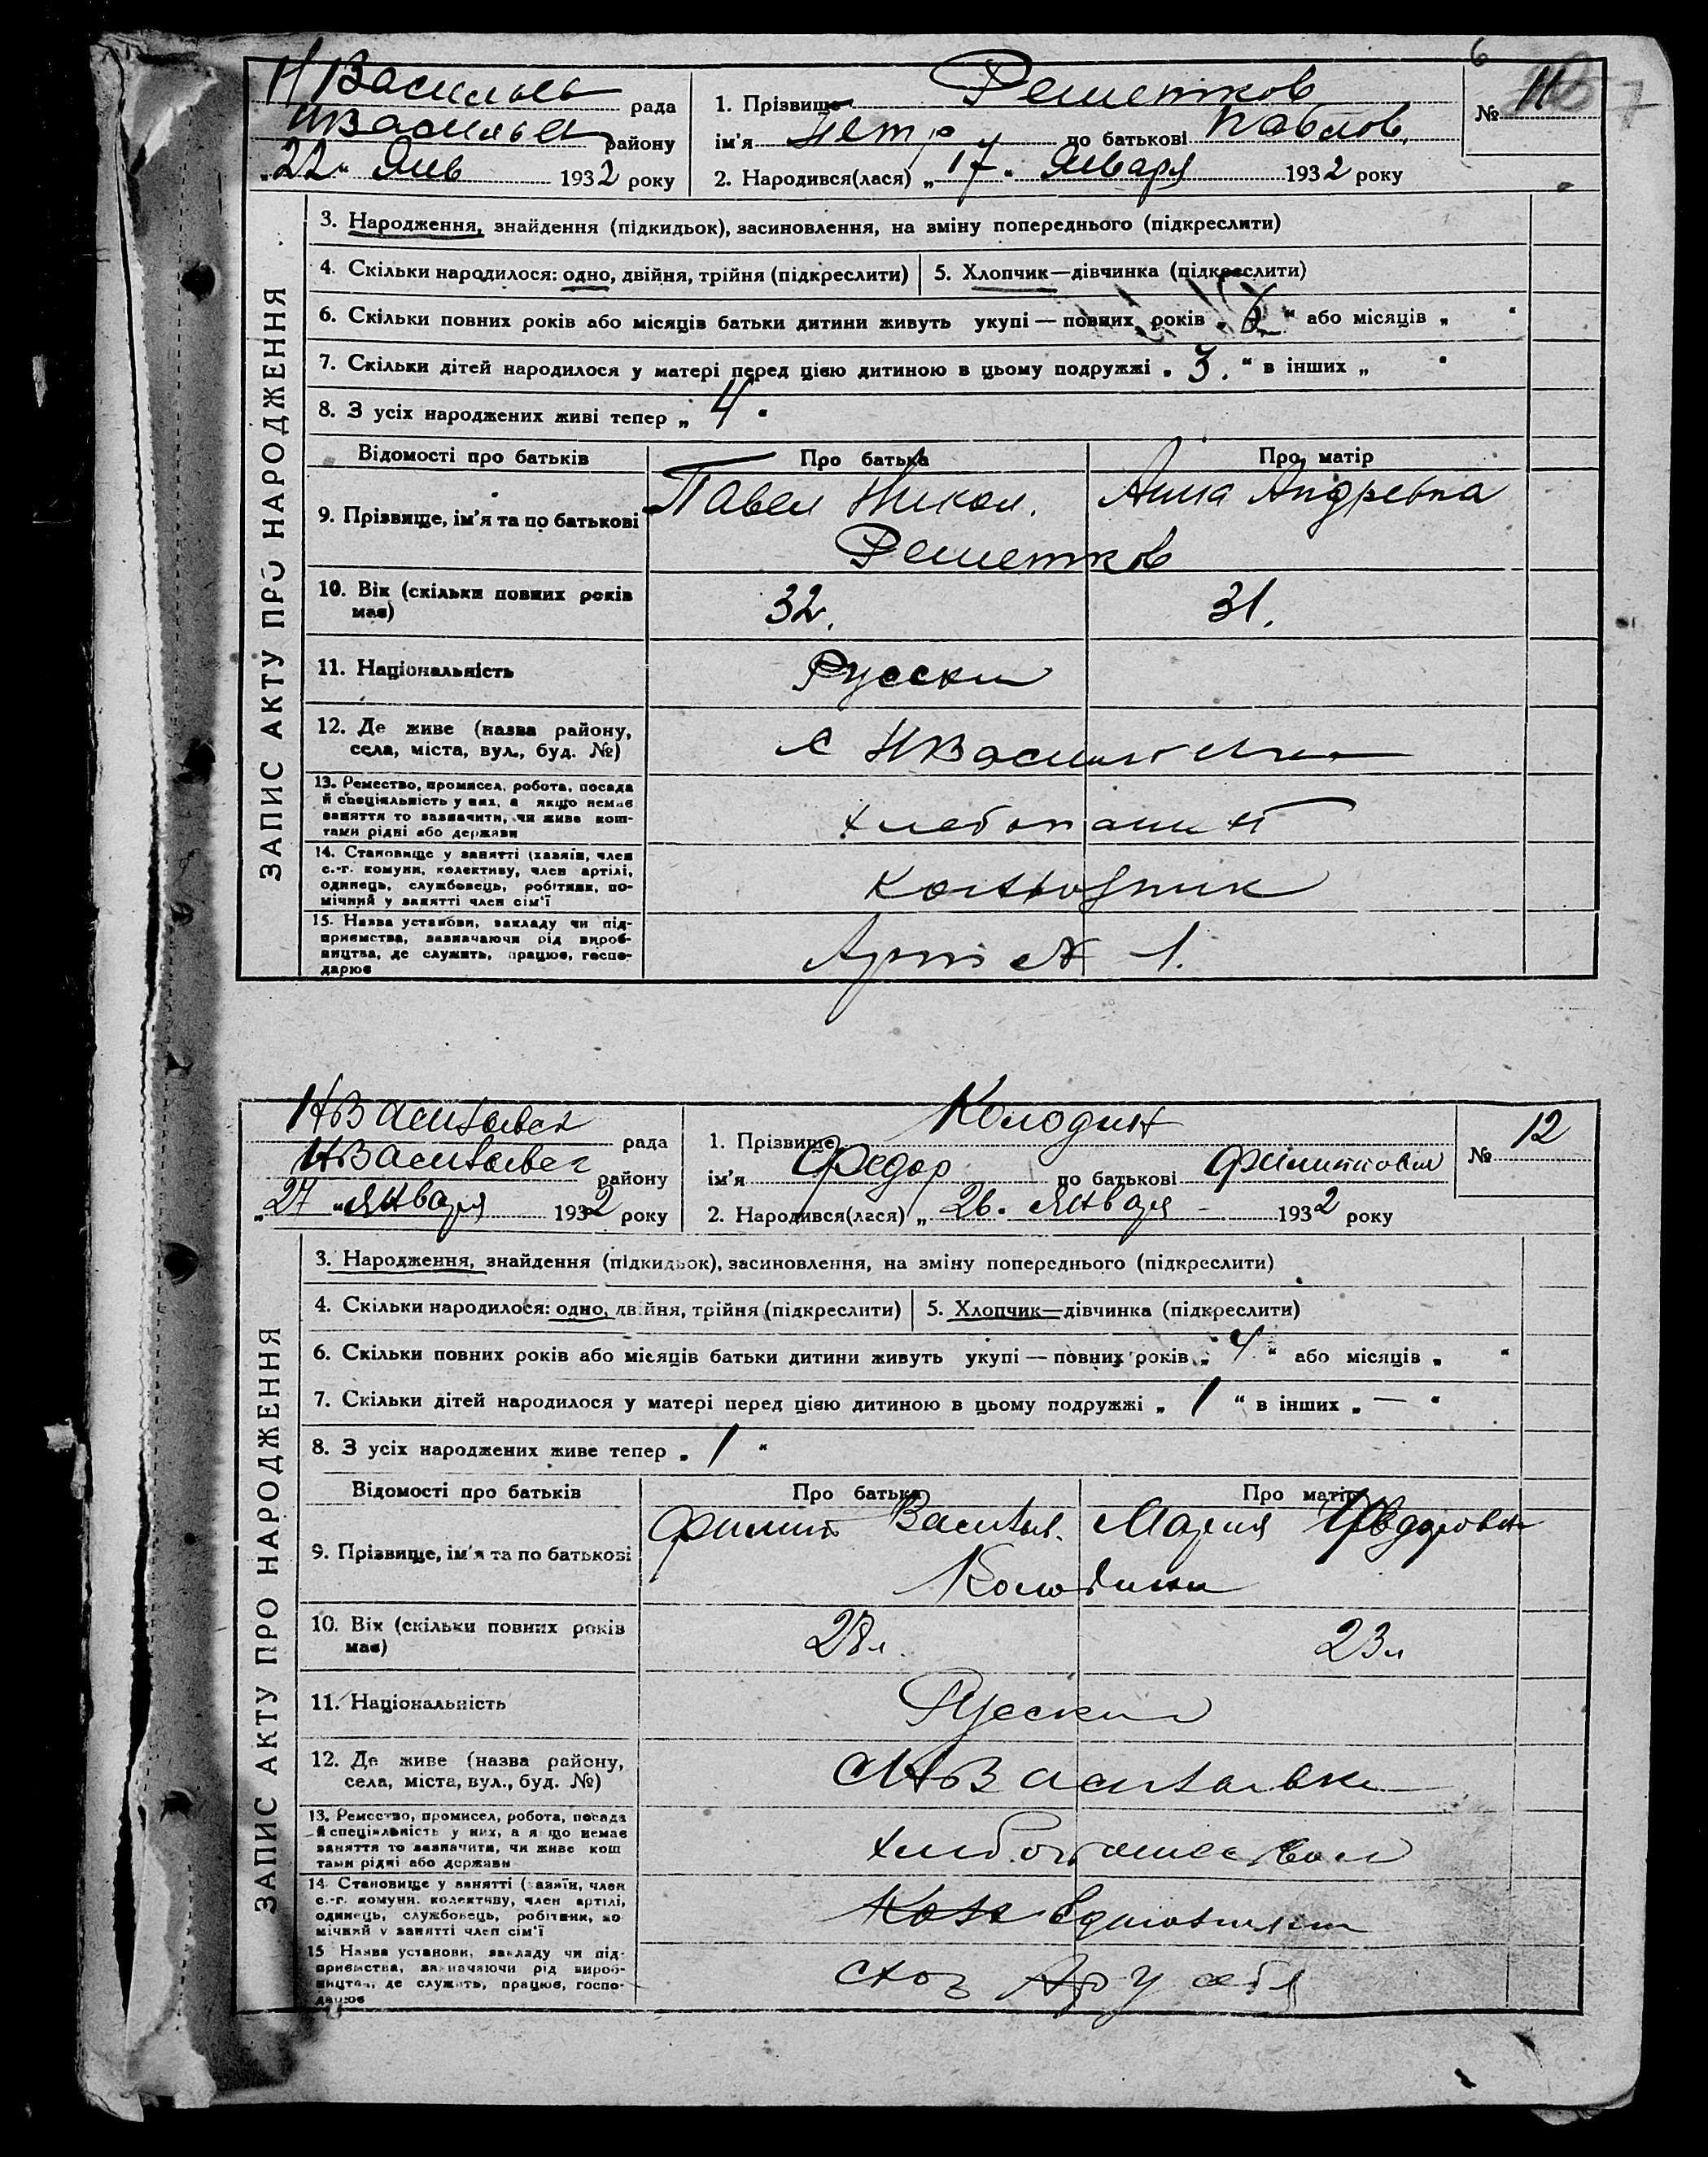 6
Н Васильев рада
НВасильев району
„22“ Янв 1932 року
1. Прізвище Решетков
ім'я Петр по батькові Павлов.
2. Народився(лася) „17“ Января 1932 року
№ 11
7
ЗАПИС АКТУ ПРО НАРОДЖЕННЯ
3. Народження, знайдення (підкидьок), засиновлення, на зміну попереднього (підкреслити)
4. Скільки народилося: одно, двійня, трійня (підкреслити) 5. Хлопчик—дівчинка (підкреслити)
6. Скільки повних років або місяців батьки дитини живуть укупі — повних років „ “ або місяців „ “
7. Скільки дітей народилося у матері перед цією дитиною в цьому подружжі „ 3. “ в інших „ “
8. З усіх народжених живі тепер „ 4 “
Відомості про батьків Про батька Про матір
9. Прізвище, ім'я та по батькові Павел Никол. Анна Андревна
Решетков
10. Вік (скільки повних років 32. 31.
має)
11. Національність Русски
12. Де живе (назва району, с НВасильевка
села, міста, вул., буд. №)
13. Ремество, промисел, робота, посада
й спеціяльність у них, а якщо немає
заняття то зазначити, чи живе кош-
тами рідні або держави
14. Становище у занятті (хазяїн, член
с.-г. комуни, колективу, член артілі, Колхозник
одинець, службовець, робітник, по-
мічний у занятті член сім'ї
15. Назва установи, закладу чи під-
приємства, зазначаючи рід вироб- Арт № 1.
ництва, де служить, працює, госпо-
дарює
НВасильевск рада
НВасильевс району
„27“ Января 1932 року
1. Прізвище Колодин
ім'я Федор по батькові Филиппович
2. Народився(лася) „26“ Января 1932 року
№ 12
ЗАПИС АКТУ ПРО НАРОДЖЕННЯ
3. Народження, знайдення (підкидьок), засиновлення, на зміну попереднього (підкреслити)
4. Скільки народилося: одно, двійня, трійня (підкреслити) 5. Хлопчик—дівчинка (підкреслити)
6. Скільки повних років або місяців батьки дитини живуть укупі — повних років „ 4 “ або місяців „ “
7. Скільки дітей народилося у матері перед цією дитиною в цьому подружжі „ 1 “ в інших „ — “
8. З усіх народжених живе тепер „ 1 “
Відомості про батьків Про батька Про матір
9. Прізвище, ім'я та по батькові Филипп Васильев. Мария Федоровн
Колодины
10. Вік (скільки повних років 28 л. 23 л
має)
11. Національність Русские
12. Де живе (назва району, С НВасильевка
села, міста, вул., буд. №)
13. Ремество, промисел, робота, посада
й спеціяльність у них, а якщо немає
заняття то зазначити, чи живе кош
тами рідні або держави
14. Становище у занятті (хазяїн, член
с.-г. комуни, колективу, член артілі,
одинець, службовець, робітник, по
мічний у занятті член сім'ї
15 Назва установи, закладу чи під-
приємства, зазначаючи рід вироб-
ництва, де служить, працює, госпо- у себя
дарює